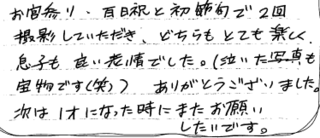 お宮参り、百日祝と初節句で2回
撮影していただき、どちらもとても楽しく、
息子も良い表情でした。(泣いた写真も
宝物です(笑)) ありがとうございました。
次は1才になった時にまたお願い
したいです。